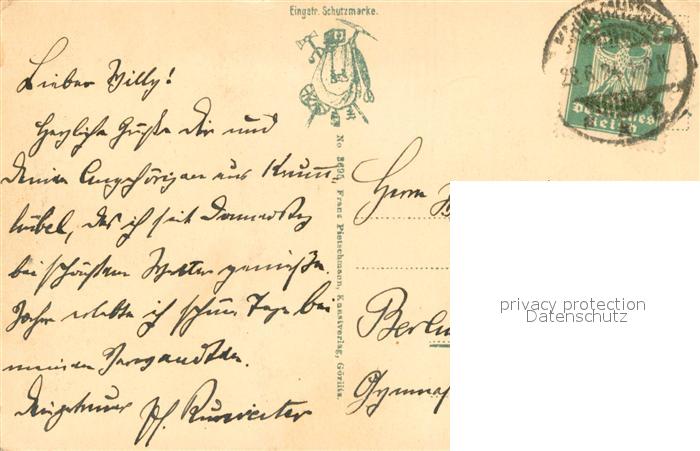 Eingetr. Schutzmarke.
Lieber Willy!
Herzliche Grüße Dir und
Deinen Angehörigen aus Krumm-
hübel, das ich seit Donnerstag
bei schönstem Wetter genieße.
erlebte ich schöne Tage bei
meinen Verwandten.
Pf.
No. 3695 Franz Pietschmann, Kunstverlag, Görlitz.
Herrn
Berlin
Gymnas
Deutsches
Reich
privacy protection
Datenschutz